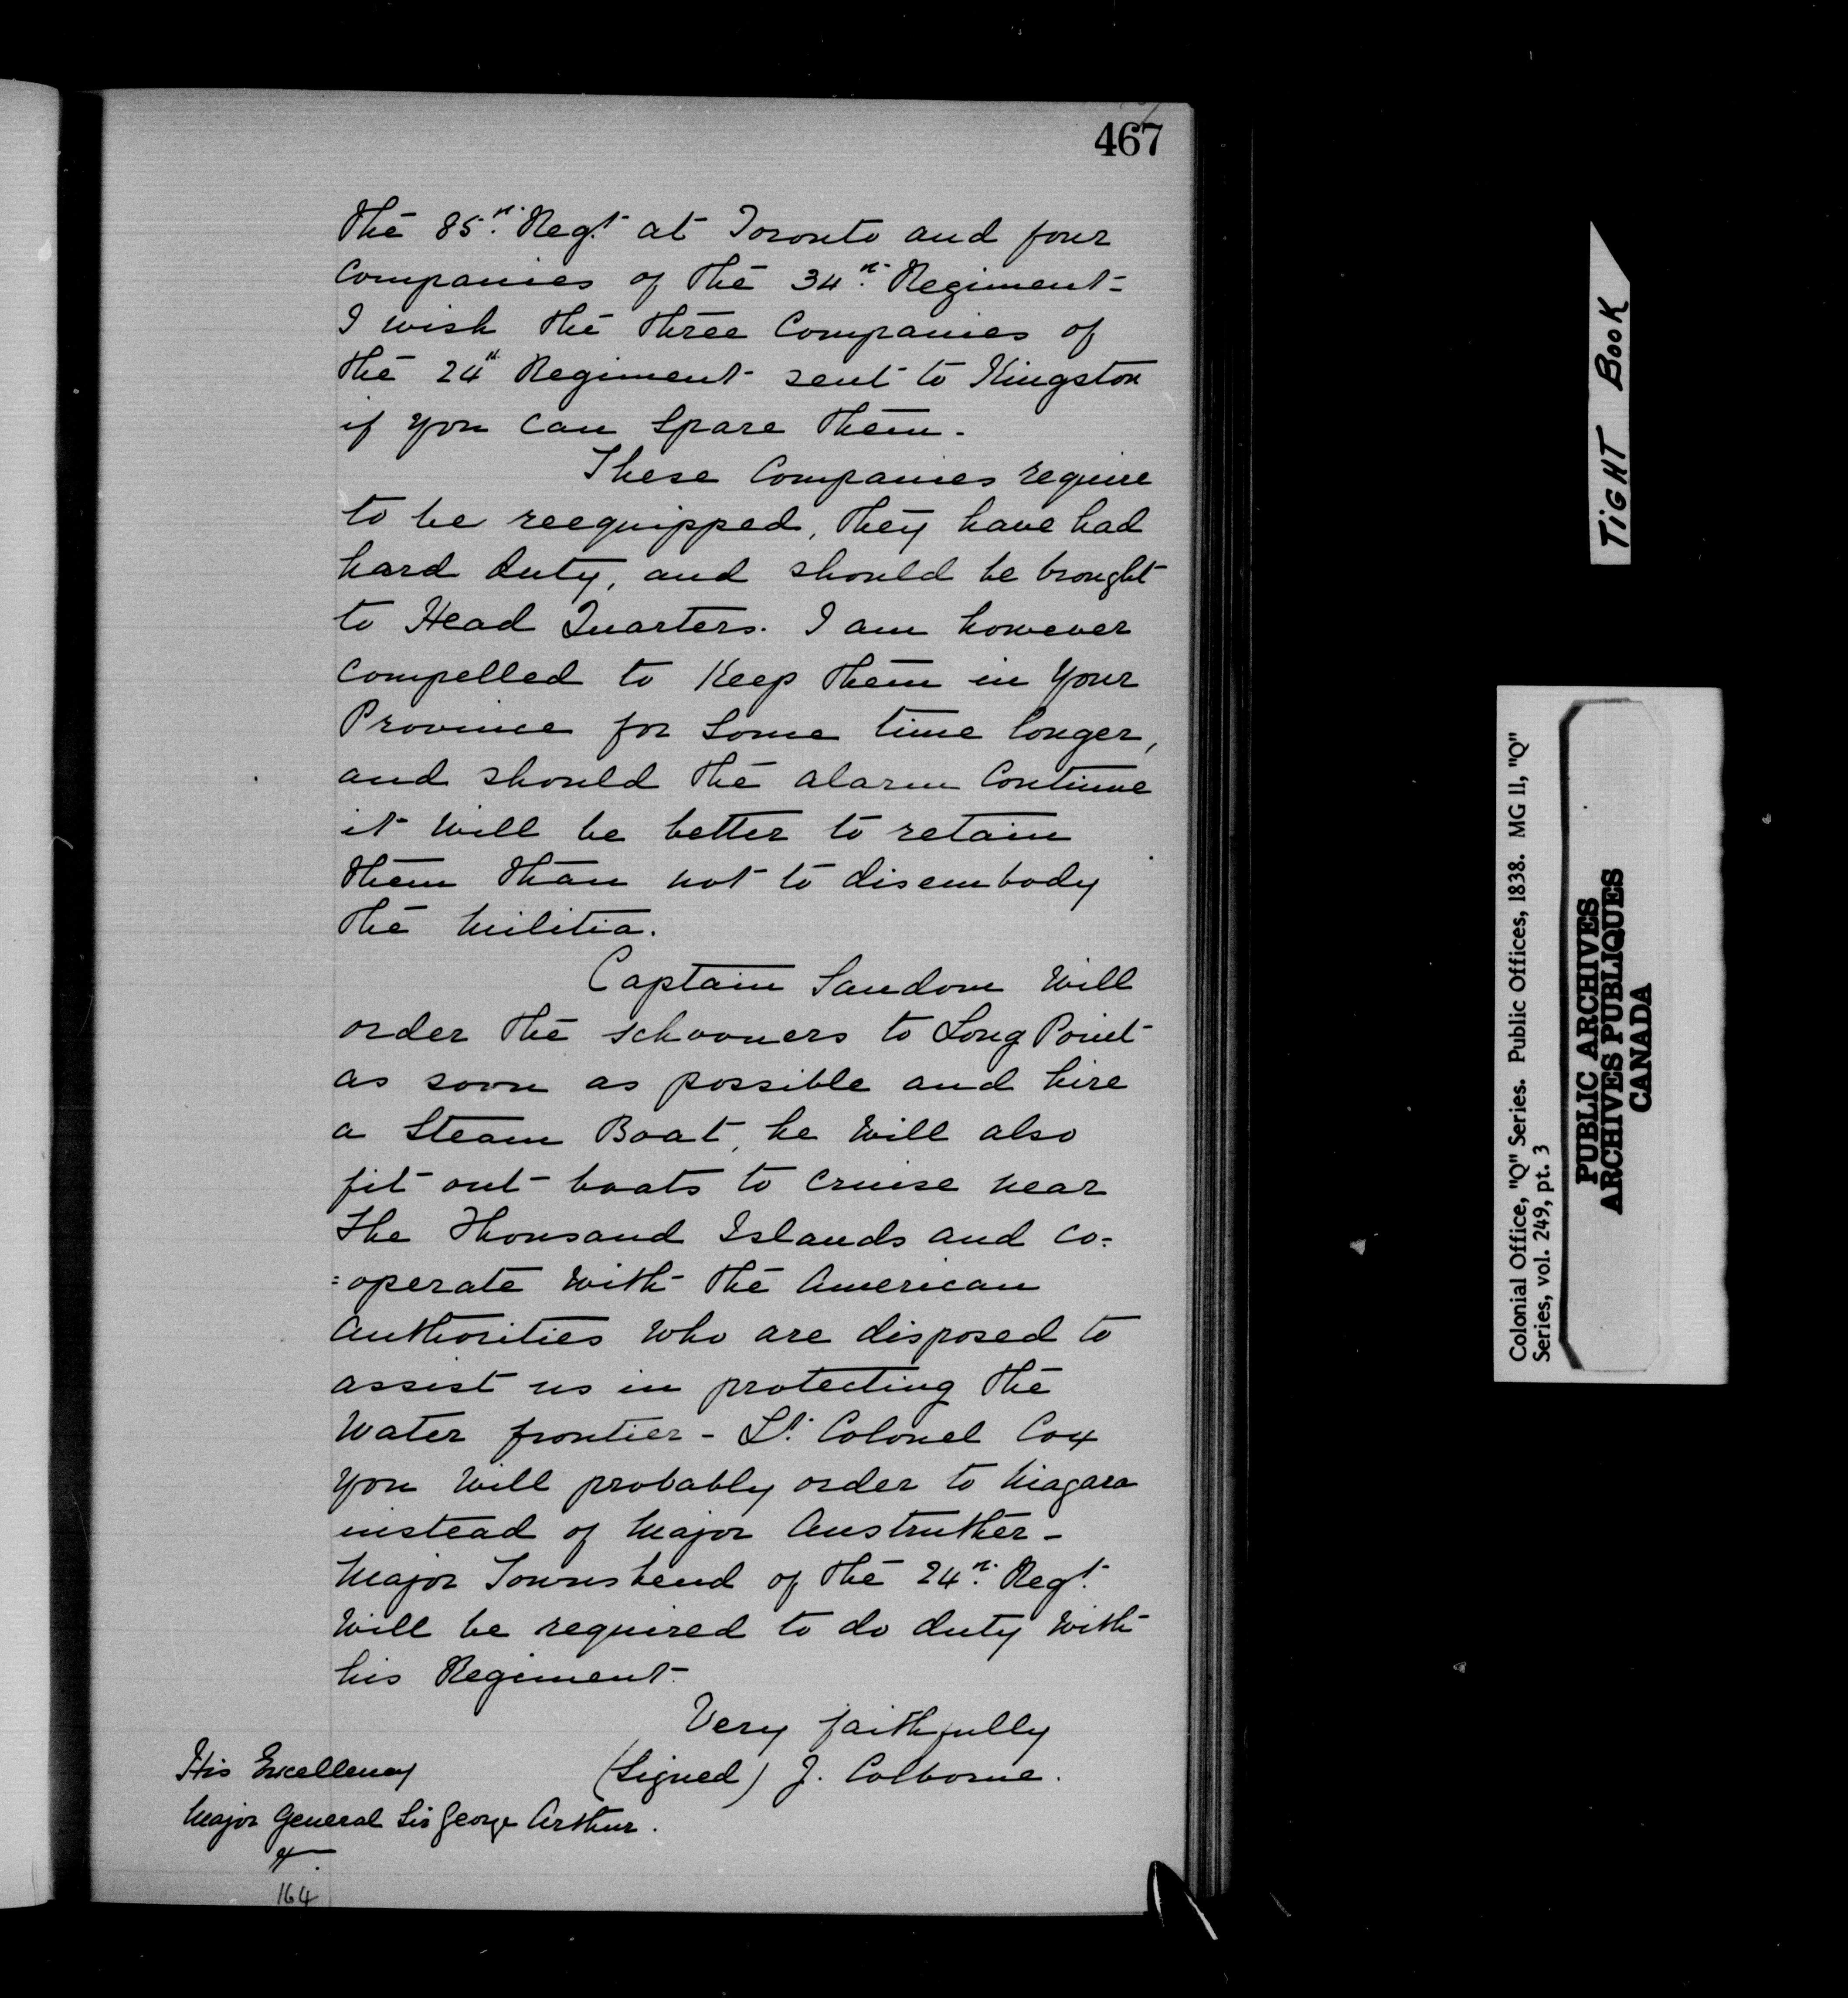 467
The 85th Regt at Toronto and four
Companies of the 34th Regiment -
I wish the three Companies of
the 24th Regiment sent to Kingston
if you can spare them.
These Companies require
to be reequipped, they have had
hard duty, and should be brought
to Head Quarters. I am however
compelled to keep them in your
Province for some time longer,
and should the alarm continue
it will be better to retain
them than not to disembody
the Militia.
Captain Sandom will
order the schooners to Long Point
as soon as possible and hire
a Steam Boat, he will also
fit out boats to cruise near
the Thousand Islands and co=
=operate with the American
Authorities who are disposed to
assist us in protecting the
Water frontier - Lt. Colonel Cox
you will probably order to Niagara
instead of Major Anstruther -
Major Townshend of the 24th Regt
will be required to do duty with
his Regiment.
Very faithfully
(Signed) J. Colborne.
His Excellency
Major General Sir George Arthur.
164
TIGHT BOOK
Colonial Office, "Q" Series. Public Offices, 1838. MG 11, "Q"
Series, vol. 249, pt. 3
PUBLIC ARCHIVES
ARCHIVES PUBLIQUES
CANADA